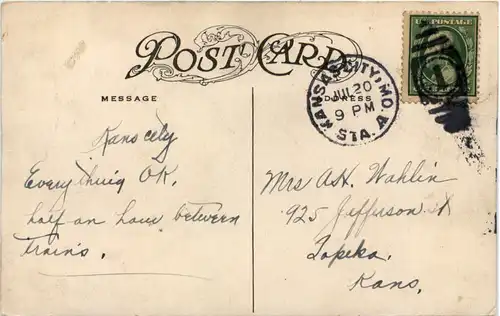 POST CARD
MESSAGE
ADDRESS
U.S. POSTAGE
1
KANSAS CITY, MO.
JUL 20
9 PM
STA. A
Kans city
Everything OK.
half an hour between
trains.
Mrs A.H. Wahlin
925 Jefferson st
Topeka.
Kans.